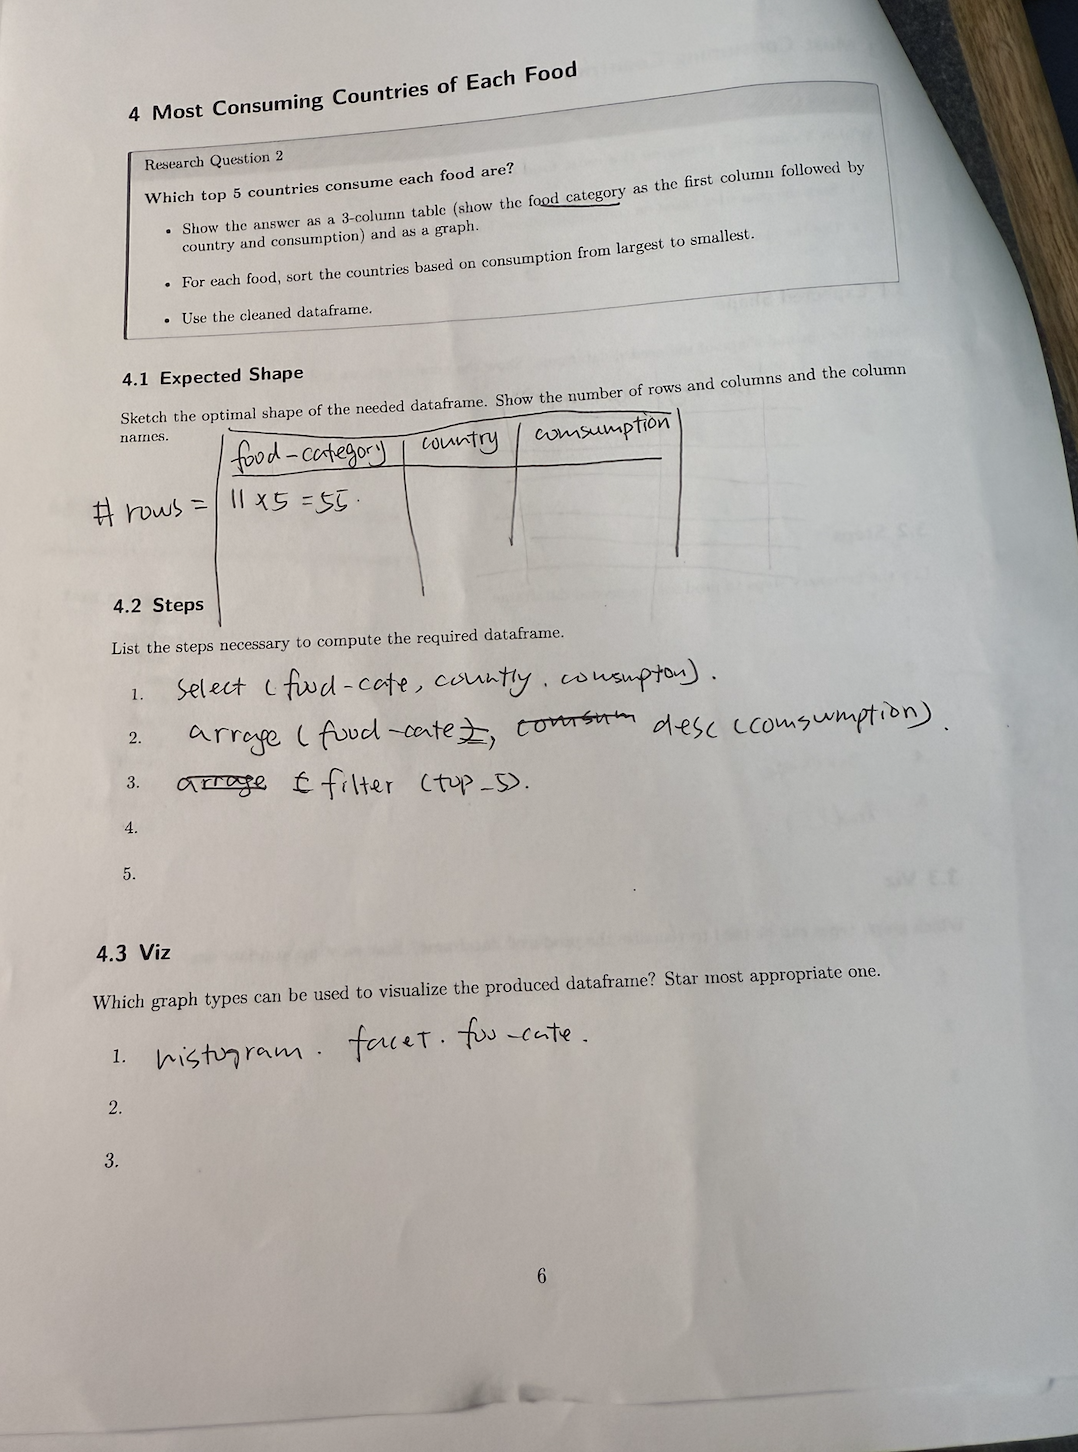 4 Most Consuming Countries of Each Food
Research Question 2
Which top 5 countries consume each food are?
• Show the answer as a 3-column table (show the food category as the first column followed by
country and consumption) and as a graph.
• For each food, sort the countries based on consumption from largest to smallest.
• Use the cleaned dataframe.
4.1 Expected Shape
Sketch the optimal shape of the needed dataframe. Show the number of rows and columns and the column
names.
food-category country comsumption
# rows = 11 x 5 = 55.
4.2 Steps
List the steps necessary to compute the required dataframe.
1. Select (food-cate, country, consumpton).
2. arrage (food-cate, comsum desc (comsumption).
3. arrage filter (top_5).
4.
5.
4.3 Viz
Which graph types can be used to visualize the produced dataframe? Star most appropriate one.
1. histogram. facet. foo-cate.
2.
3.
6